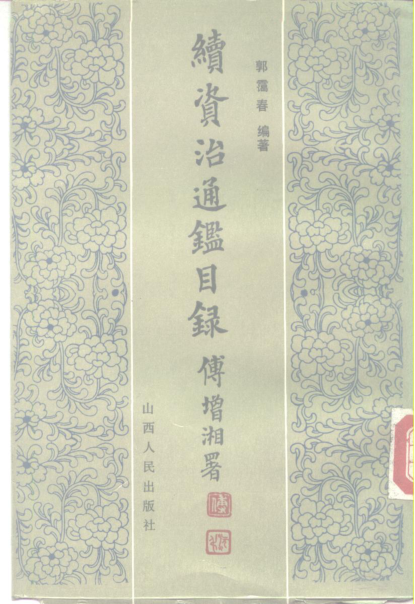 郭靄春 編著
續資治通鑑目録
傅增湘署
山西人民出版社